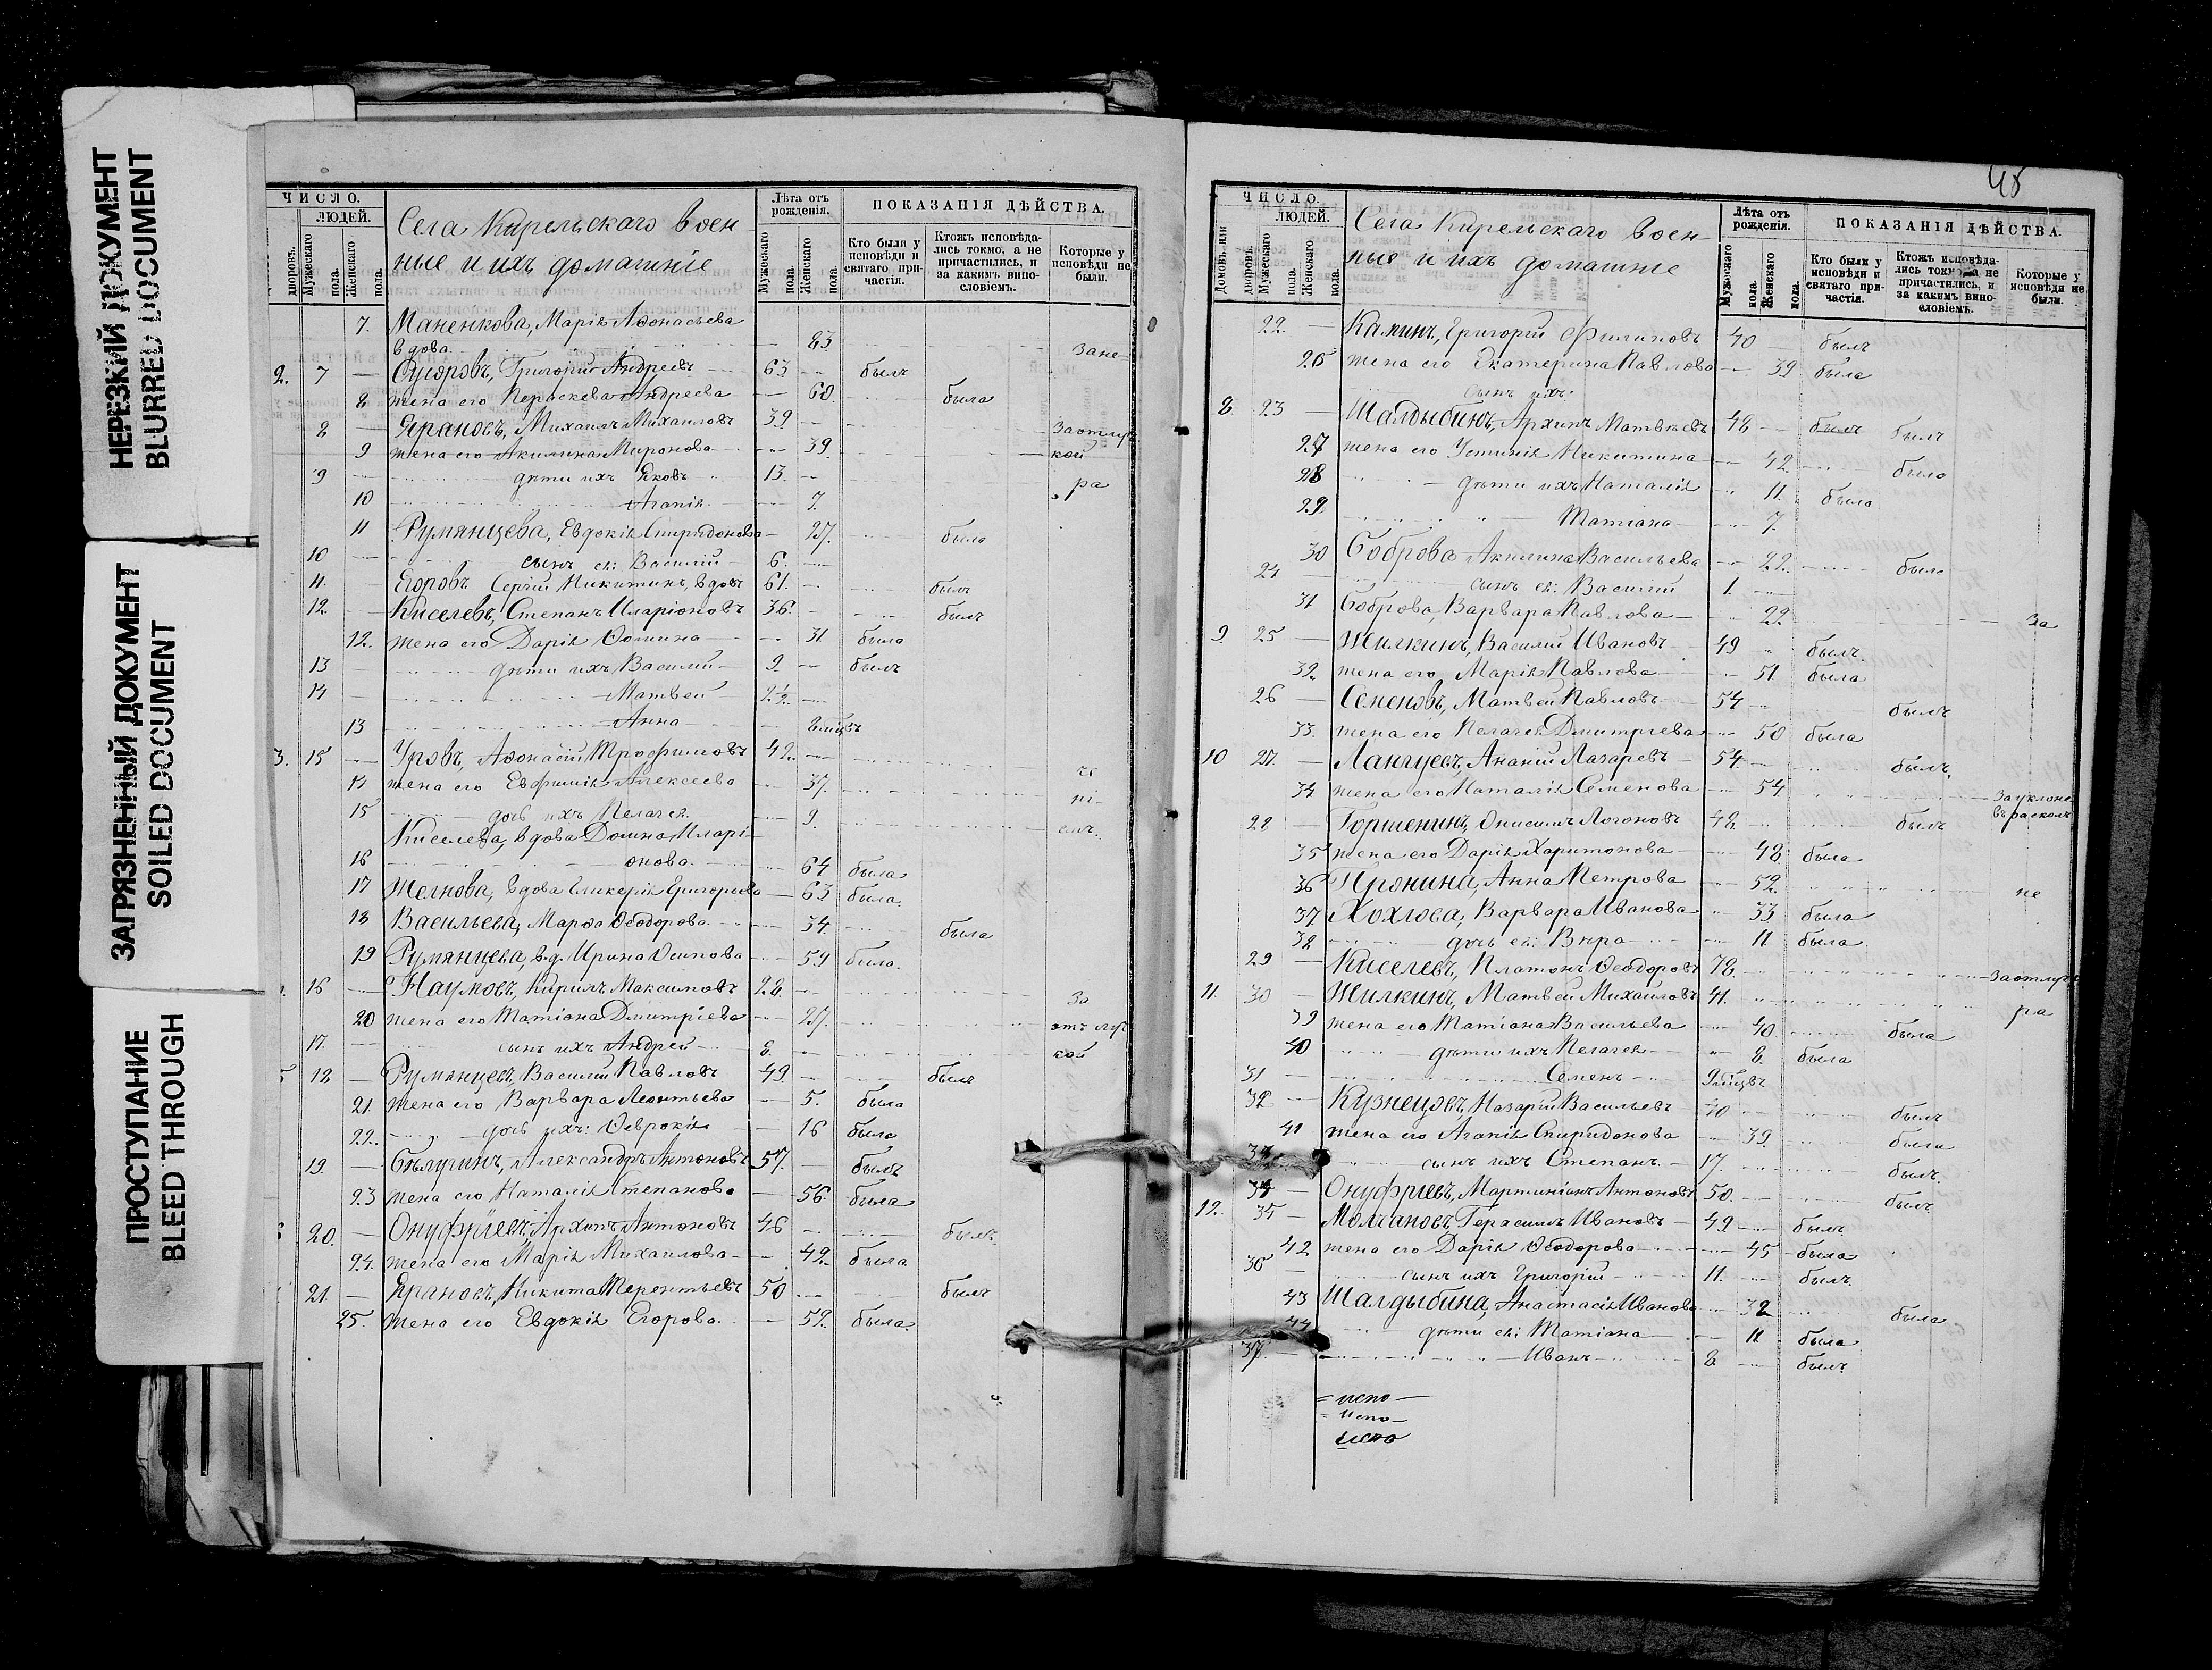 НЕРЕЗКИЙ ДОКУМЕНТ
BLURRED DOCUMENT
ЗАГРЯЗНЕННЫЙ ДОКУМЕНТ
SOILED DOCUMENT
ПРОСТУПАНИЕ
BLEED THROUGH
ЧИСЛО.
ЛЮДЕЙ.
дворовъ.
Мужескаго пола.
Женскаго пола.
Села Кирельскаго воен
ные и ихъ домашніе
Лѣта отъ рожденія.
Мужескаго пола.
Женскаго пола.
ПОКАЗАНІЯ ДѢЙСТВА.
Кто были у исповѣди и святаго причастія.
Ктожъ исповѣдались токмо, а не причастились, и за какимъ винословіемъ.
Которые у исповѣди не были.
7. Маненкова, Марія Аѳонасьева
вдова 83 Зане-
2. 7 — Сусоровъ, Григорій Андреевъ 63 — былъ
8 жена его Пераскева Андреева — 60 была
8 — Ярановъ, Михаилъ Михаиловъ 39 — За отлуч
9 жена его Акилина Миронова — 39. кой
9 — дѣти ихъ Яковъ 13. — ра
10 Агапія — 7.
11 Румянцева, Евдокія Спиридонова — 27. была
10 — сынъ ея: Василій 6. —
11. — Егоровъ Сергій Никитинъ, вдовъ 61. — былъ
12. — Киселевъ, Степанъ Иларіоновъ 36. — былъ
12. жена его Дарія Ѳомина — 31 была
13 — дѣти ихъ Василій 9. — былъ
14 — Матвей 2½ —
13 Анна —
3. 15 — Угровъ, Аѳонасій Трофимовъ 42. —
14 жена его Евфимія Алексеева — 37.
15 дочь ихъ Пелагея — 9.
Киселева, вдова Домна Иларі-
16 онова — 64 была
17 вдова Гликерія Григорьева — 63 была.
18 Васильева, Марѳа Ѳеодорова — 34. была
19 Румянцева, вд. Ирина Осипова — 59 была.
16 — Наумовъ, Кирилъ Максимовъ 28. — За
20 жена его Татіана Дмитріева — 27. отлуч
17. — сынъ ихъ Андрей 8. — кой
5 18 — Румянцевъ, Василій Павловъ 49. — былъ
21. жена его Варвара Леонтьева — 5. была
22. дочь ихъ: Ѳеврокія — 16 была
19 — Бѣлугинъ, Александръ Антоновъ 57. — былъ
23 жена его Наталія Степанова — 56. была
20. — Онуфріевъ, Архипъ Антоновъ 46 — былъ
24. жена его Марія Михаилова — 42. была
21. — Ярановъ, Никита Терентьевъ 50 — былъ
25. жена его Евдокія Егорова. — 52. была.
48
ЧИСЛО.
ЛЮДЕЙ.
Домовъ, или дворовъ.
Мужескаго пола.
Женскаго пола.
Села Кирельскаго воен-
ные и ихъ домашніе
Лѣта отъ рожденія.
Мужескаго пола.
Женскаго пола.
ПОКАЗАНІЯ ДѢЙСТВА.
Кто были у исповѣди и святаго причастія.
Ктожъ исповѣдались токмо, а не причастились, и за какимъ винословіемъ.
Которые у исповѣди не были.
22. — Каминъ, Григорій Филиповъ 40 — былъ
26 жена его Екатерина Павлова — 39 была
сынъ ихъ:
8. 23 — Шалдыбинъ, Архипъ Матвѣевъ 48 — былъ былъ
27 жена его Устинія Никитина — 42. была
28 дѣти ихъ Наталія 11. была
29 Татіана — 7.
30 Боброва Акилина Васильева — 22. была
24 — сынъ ея: Василій 1. —
31 Боброва, Варвара Павлова — 22. За
9 25 — Жилкинъ, Василій Ивановъ 49 былъ.
32 жена его Марія Павлова 51. была
26 — Семеновъ, Матвей Павловъ 54 былъ
33. жена его Пелагея Дмитріева — 50 была
10 27. — Лангуевъ, Ананій Лазаревъ 54. былъ.
34 жена его Наталія Семенова — 54 За уклоне
28 — Горшенинъ, Онисимъ Логоновъ 48. былъ въ расколъ
35 жена его Дарія Харитонова — 48. была
36 Пронина, Анна Петрова — 52. не
37 Хохлова, Варвара Иванова 33 была
38 дочь ея: Вѣра — 11 была.
29 — Киселевъ, Платонъ Ѳеодоровъ 78. За отлуч
11. 30 — Жилкинъ, Матвей Михаиловъ 41. ра
39 жена его Татіана Васильева — 40. была
40 дѣти ихъ Пелагея — 8. была
31 — Семенъ
32 — Кузнецовъ, Назарій Васильевъ 40 былъ
41 жена его Агапія Спиридонова — 39 была
сынъ ихъ Степанъ. 17. былъ.
34 — Онуфріевъ, Мартиніанъ Антоновъ 50. былъ
12. 35 — Молчановъ, Герасимъ Ивановъ 49 — былъ
42 жена его Дарія Ѳеодорова — 45 была
36 — сынъ ихъ Григорій 11. — былъ.
43 Шалдыбина, Анастасія Иванова — 32 была
44 дѣти ея: Татіана — 11 была
37. — Иванъ 8. — былъ.
= испо —
= испо —
испо